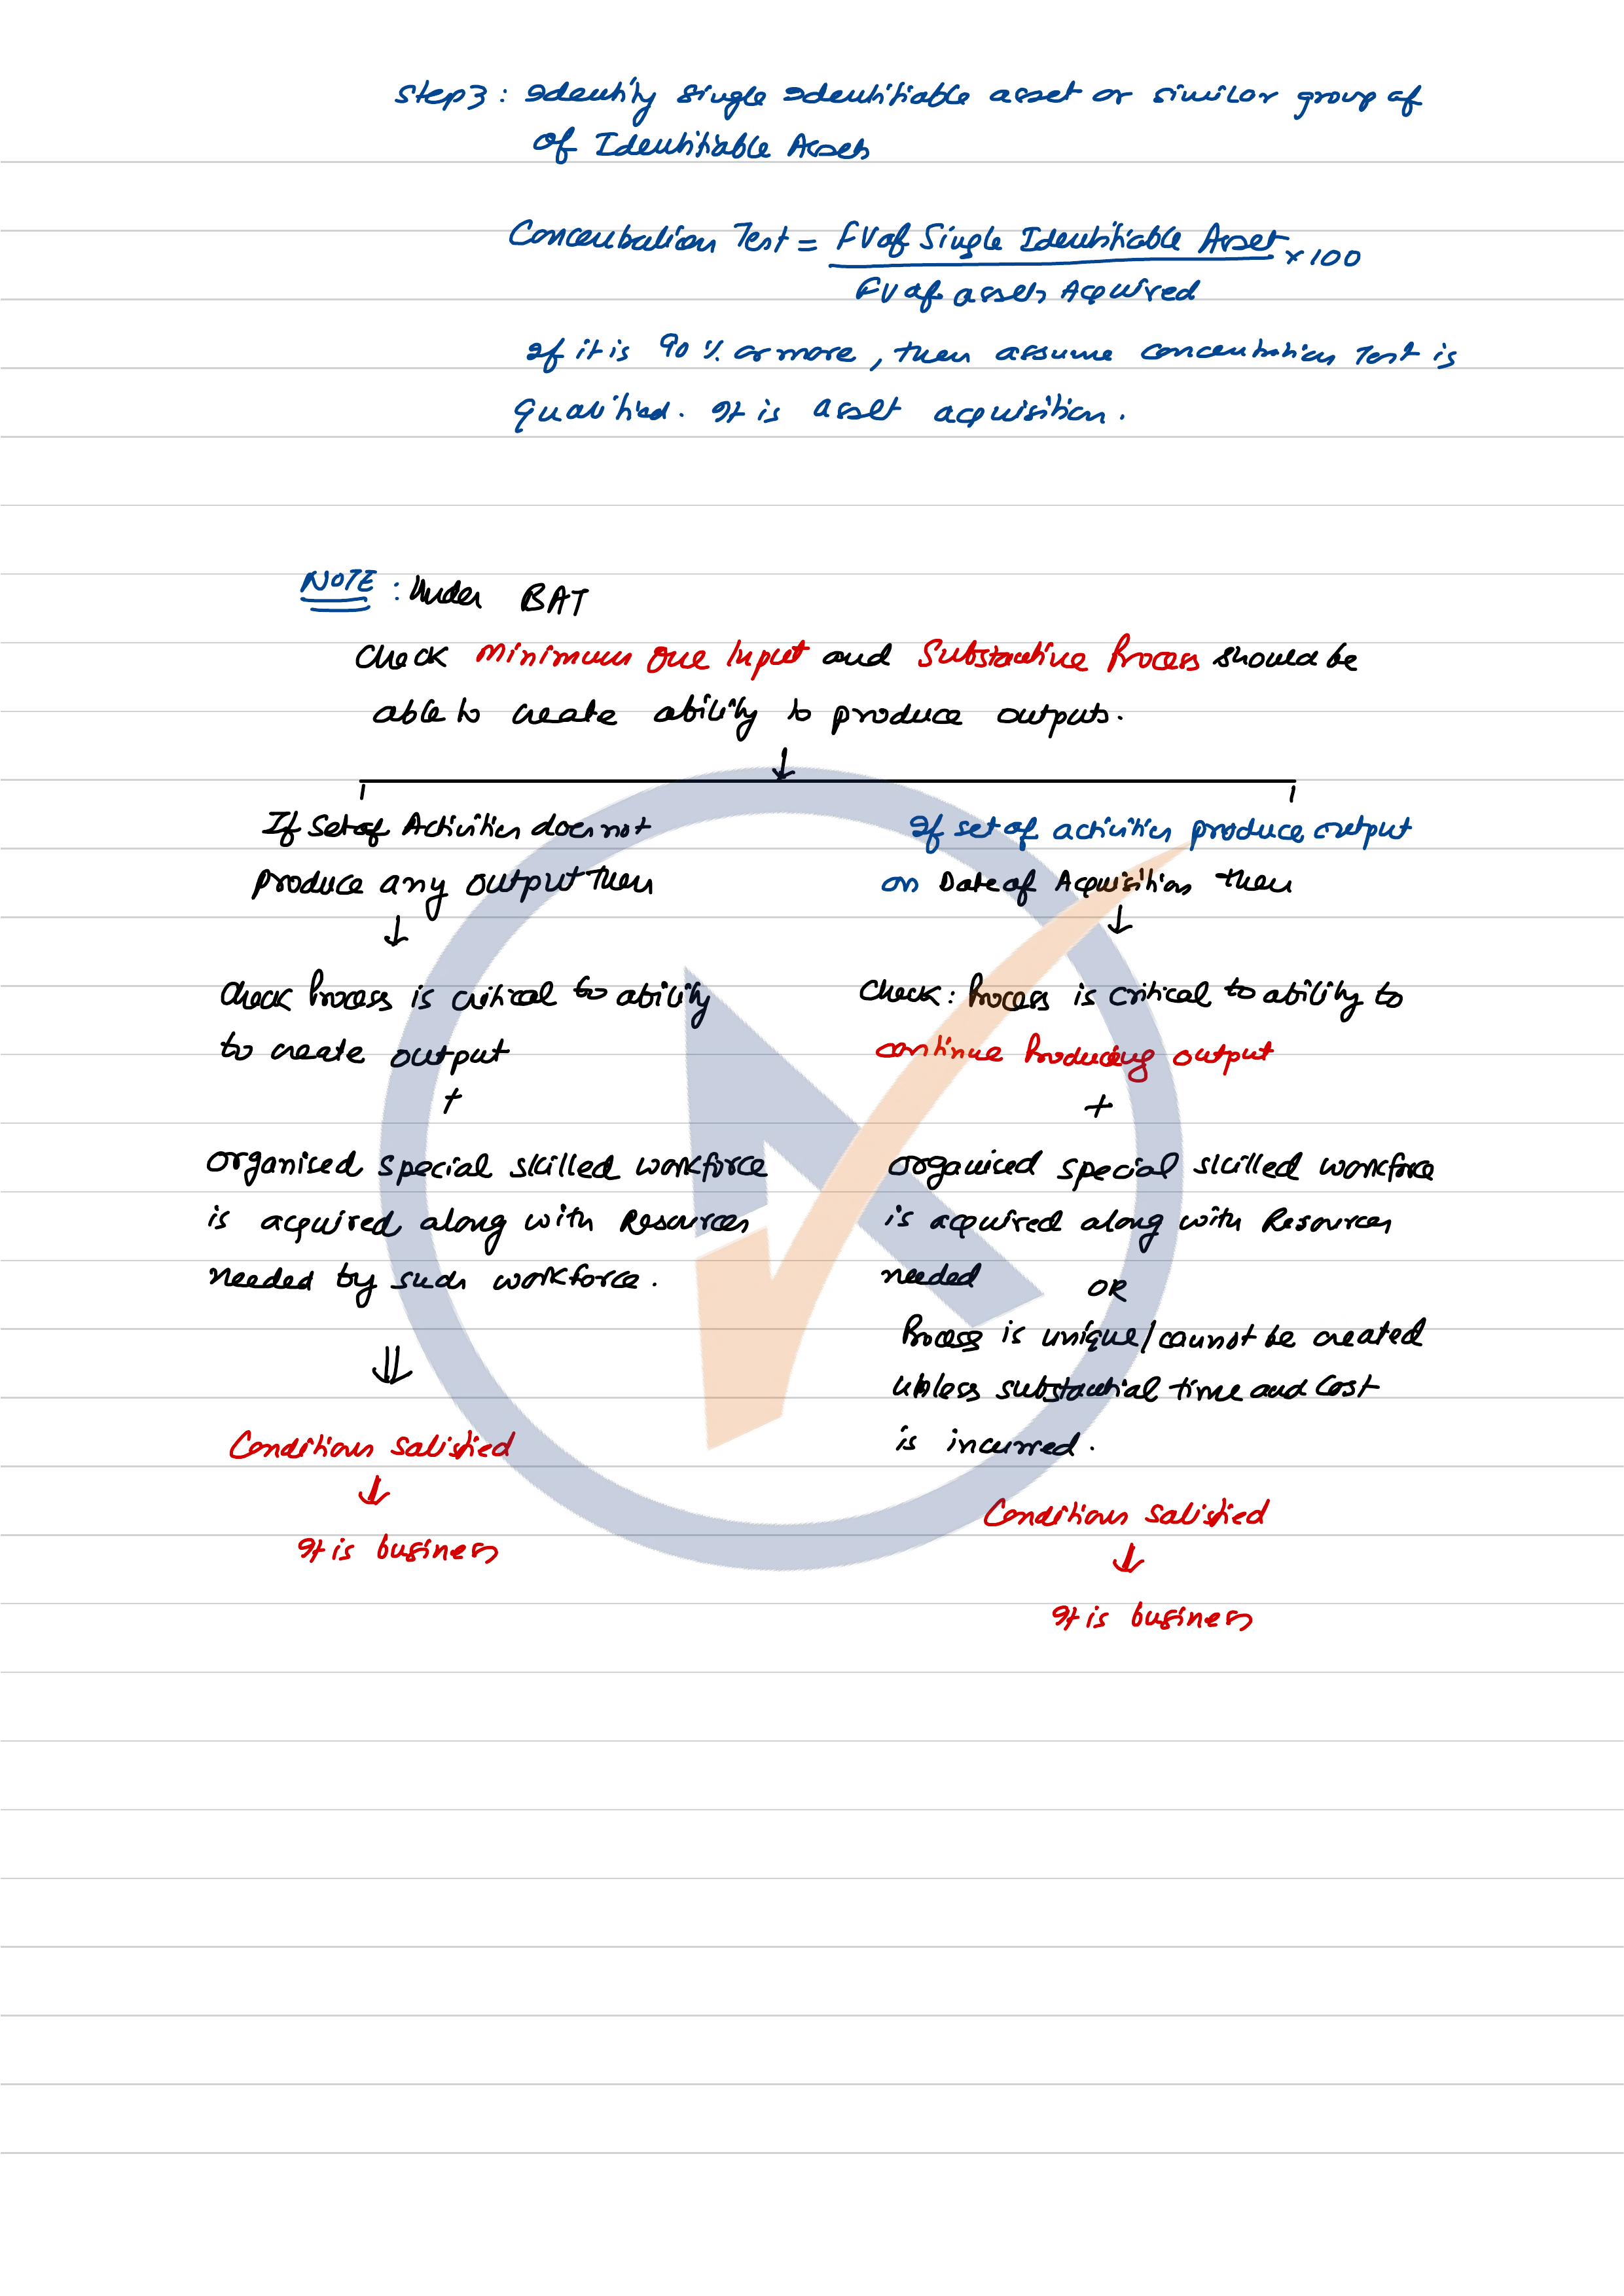 Step3: Identify single Identifiable asset or similar group of
of Identifiable Assets
Concentration Test = FV of Single Identifiable Asset × 100
FV of assets Acquired
If it is 90 % or more, then assume concentration Test is
Qualified. It is asset acquisition.
NOTE : Under BAT
Check Minimum One Input and Substantive Process should be
able to create ability to produce outputs.
If Set of Activities does not
produce any output then
↓
Check Process is critical to ability
to create output
+
Organised special skilled workforce
is acquired along with Resources
needed by such workforce.
⇓
Conditions satisfied
↓
It is business
If set of activities produce output
on Date of Acquisition then
↓
Check: Process is critical to ability to
continue Producing output
+
Organised special skilled workforce
is acquired along with Resources
needed OR
Process is unique/cannot be created
unless substantial time and cost
is incurred.
Conditions satisfied
↓
It is business